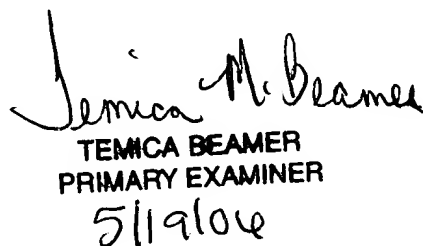 Temica M. Beamer
TEMICA BEAMER
PRIMARY EXAMINER
5/19/06